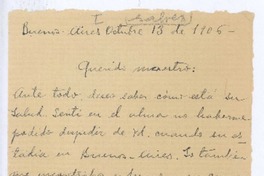 I (sabes)
Buenos Aires Octubre 13 de 1905 -
Querido maestro:
Ante todo, deseo saber cómo está su
salud. Sentí en el alma no haberme
podido despedir de Vd. cuando su es
tadía en Buenos-Aires. Yo también